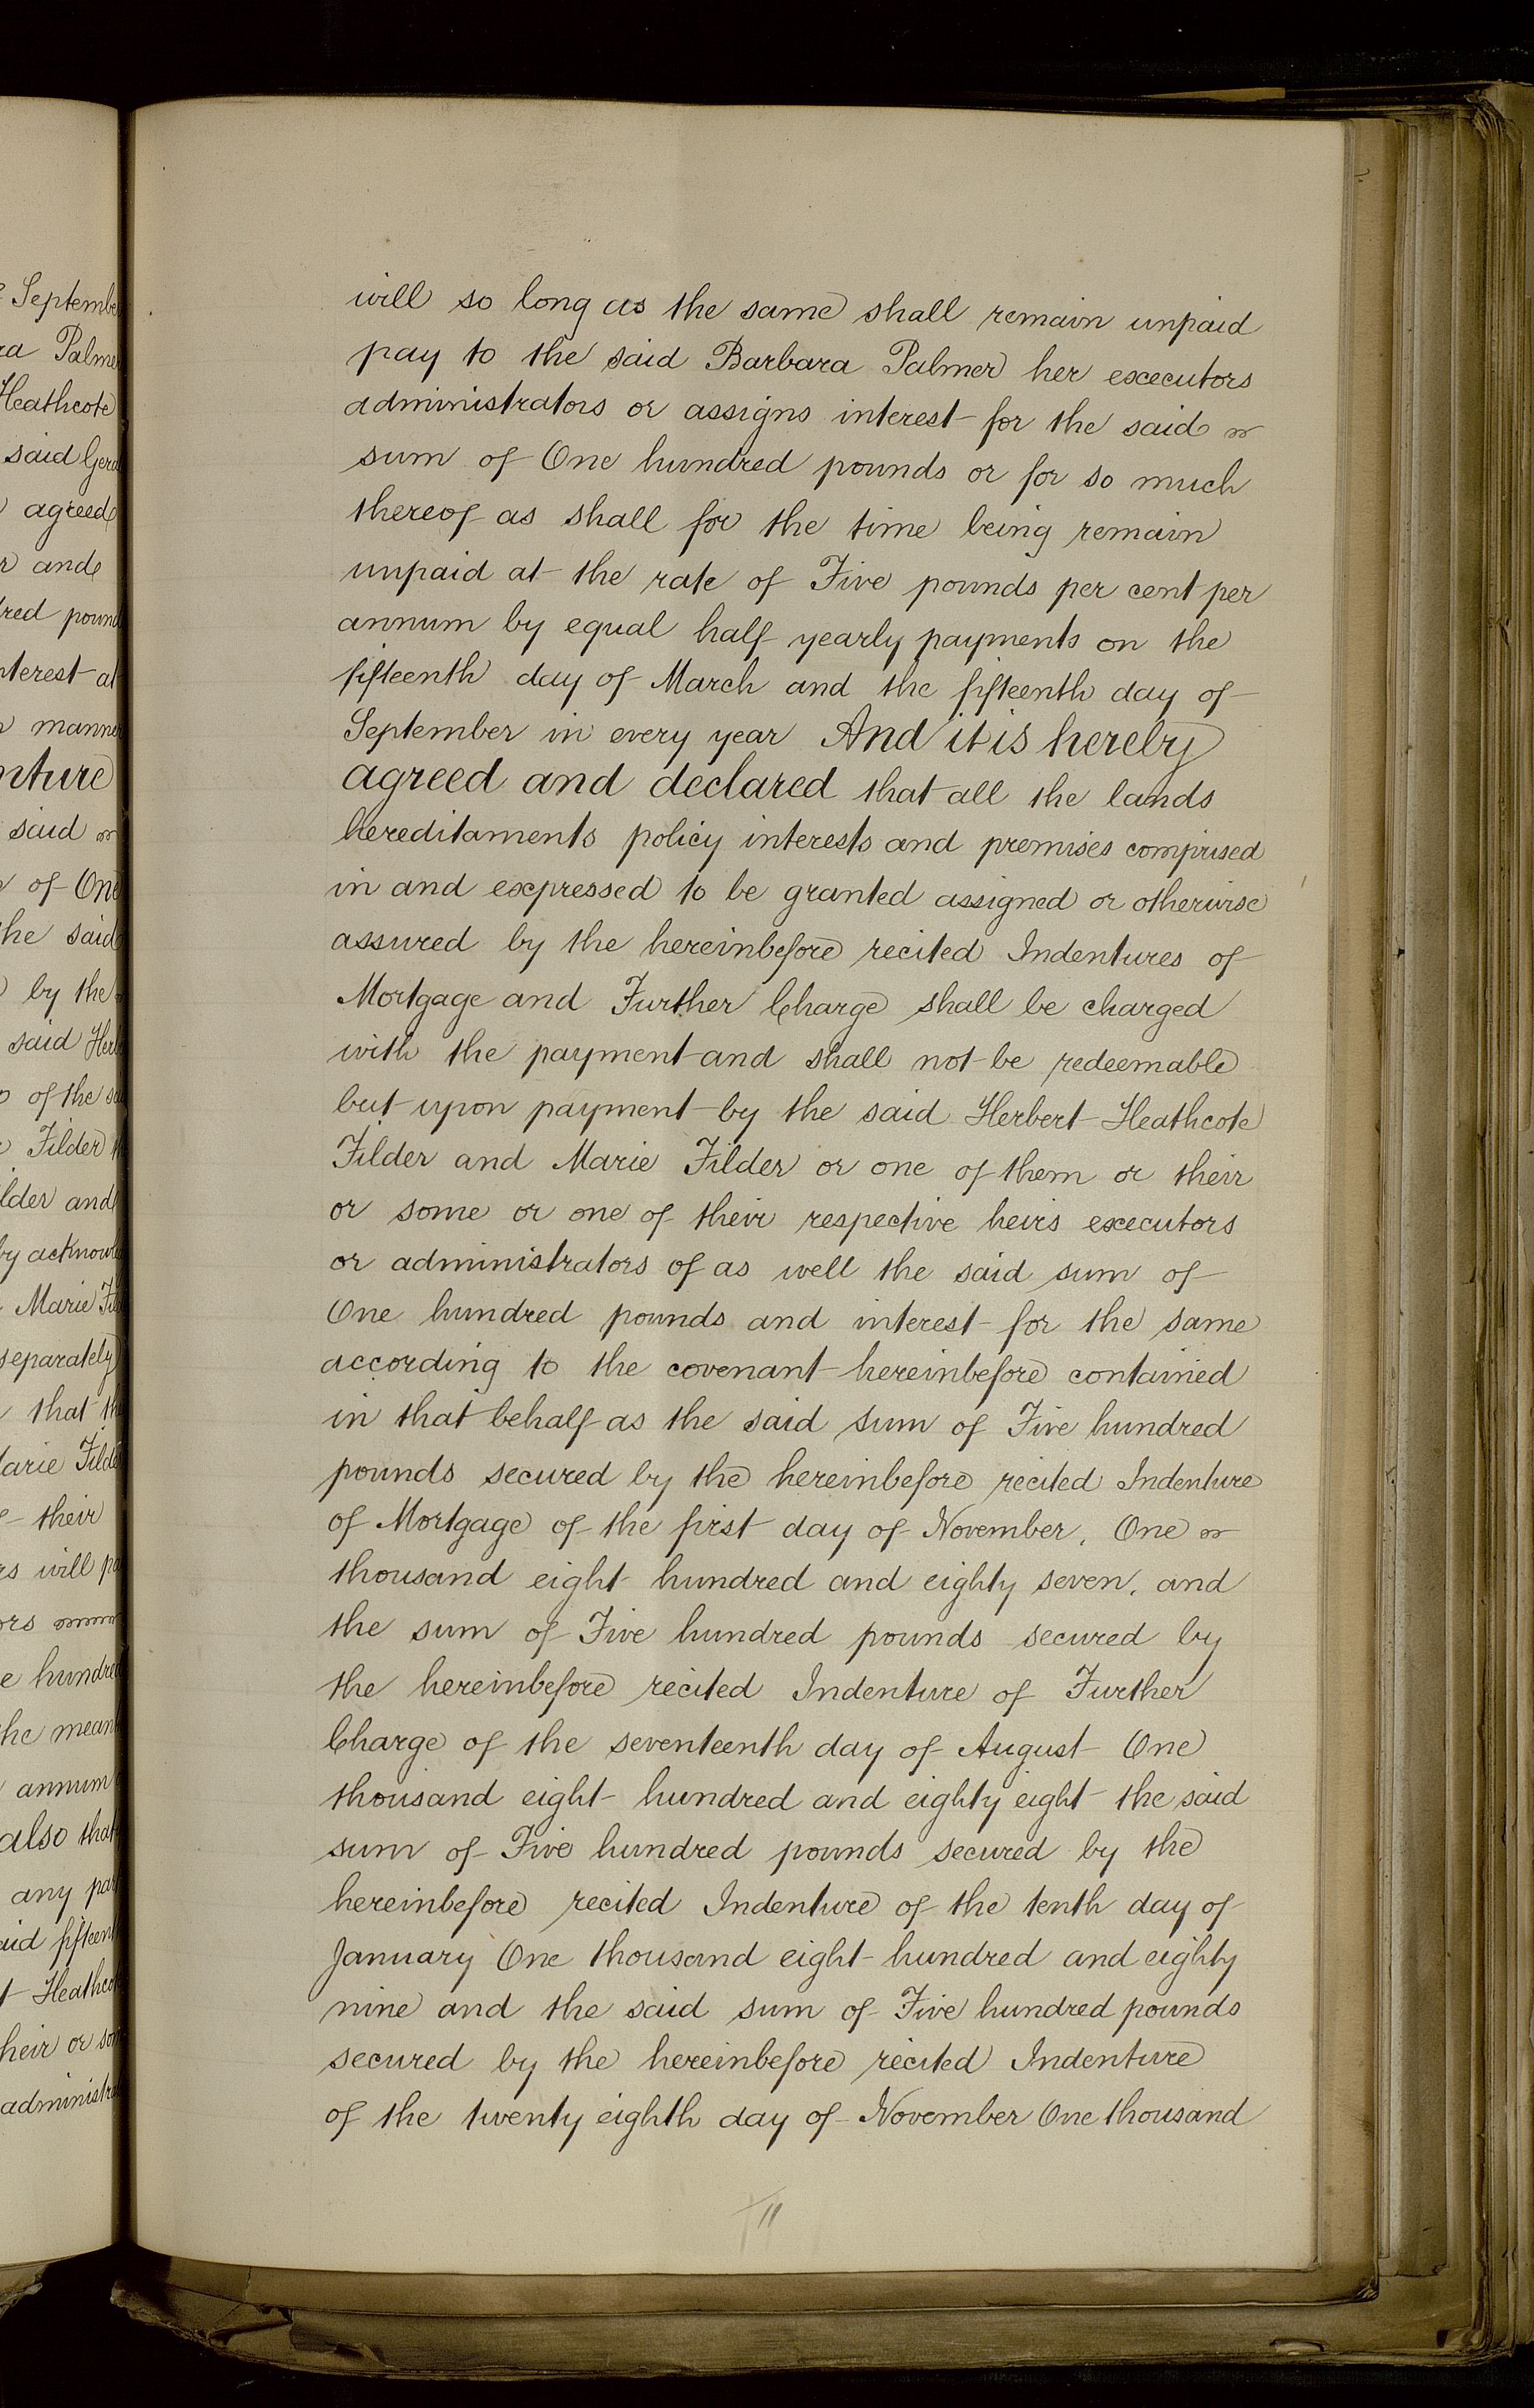 September
Palmer
Heathcote
said
agreed
and
manner
said
of One
said
by the
said
of the
Filder
and
Marie
separately
that
Filder
their
will
hundred
annum
also that
any
Heathcote
or
will so long as the same shall remain unpaid
pay to the said Barbara Palmer her executors
administrators or assigns interest for the said
sum of One hundred pounds or for so much
thereof as shall for the time being remain
unpaid at the rate of Five pounds per cent per
annum by equal half yearly payments on the
fifteenth day of March and the fifteenth day of
September in every year And it is hereby
agreed and declared that all the lands
hereditaments policy interests and premises comprised
in and expressed to be granted assigned or otherwise
assured by the hereinbefore recited Indentures of
Mortgage and Further Charge shall be charged
with the payment and shall not be redeemable
but upon payment by the said Herbert Heathcote
Filder and Marie Filder or one of them or their
or some or one of their respective heirs executors
or administrators of as well the said sum of
One hundred pounds and interest for the same
according to the covenant hereinbefore contained
in that behalf as the said sum of Five hundred
pounds secured by the hereinbefore recited Indenture
of Mortgage of the first day of November, One
thousand eight hundred and eighty seven, and
the sum of Five hundred pounds secured by
the hereinbefore recited Indenture of Further
Charge of the seventeenth day of August One
thousand eight hundred and eighty eight the said
sum of Five hundred pounds secured by the
hereinbefore recited Indenture of the tenth day of
January One thousand eight hundred and eighty
nine and the said sum of Five hundred pounds
secured by the hereinbefore recited Indenture
of the twenty eighth day of November One thousand
11